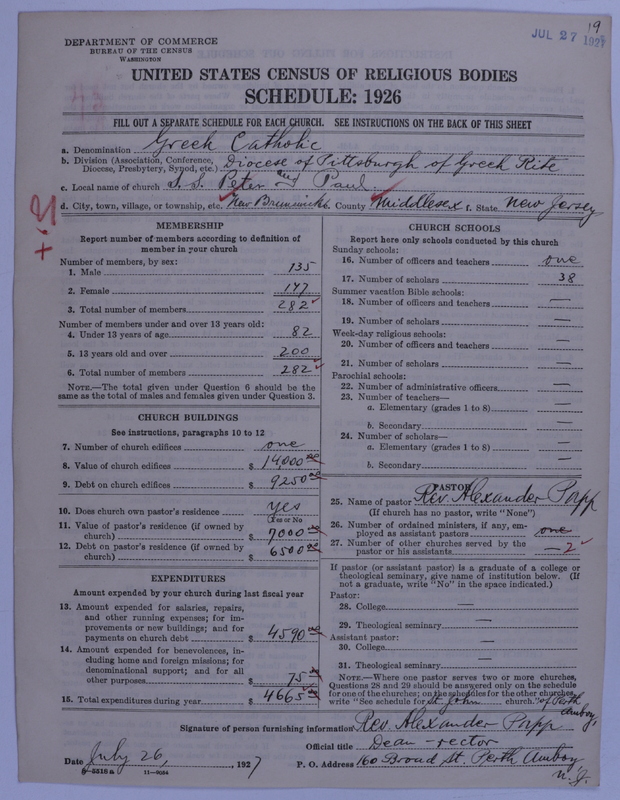 19
JUL 27 1927
DEPARTMENT OF COMMERCE
BUREAU OF THE CENSUS
WASHINGTON
UNITED STATES CENSUS OF RELIGIOUS BODIES
SCHEDULE: 1926
FILL OUT A SEPARATE SCHEDULE FOR EACH CHURCH. SEE INSTRUCTIONS ON THE BACK OF THIS SHEET
a. Denomination Greek Catholic
b. Division (Association, Conference, Diocese of Pittsburgh of Greek Rite
Diocese, Presbytery, Synod, etc.)
c. Local name of church S.S. Peter and Paul
d. City, town, village, or township, etc. New Brunswick e. County Middlesex f. State New Jersey
MEMBERSHIP
Report number of members according to definition of
member in your church
Number of members, by sex:
1. Male 135
2. Female 147
3. Total number of members 282
Number of members under and over 13 years old:
4. Under 13 years of age 82
5. 13 years old and over 200
6. Total number of members 282
NOTE.—The total given under Question 6 should be the
same as the total of males and females given under Question 3.
CHURCH BUILDINGS
See instructions, paragraphs 10 to 12
7. Number of church edifices one
8. Value of church edifices $ 14000
9. Debt on church edifices $ 9250
10. Does church own pastor's residence yes
Yes or No
11. Value of pastor's residence (if owned by
church) $ 7000
12. Debt on pastor's residence (if owned by
church) $ 6500
EXPENDITURES
Amount expended by your church during last fiscal year
13. Amount expended for salaries, repairs,
and other running expenses; for im-
provements or new buildings; and for
payments on church debt $ 4590
14. Amount expended for benevolences, in-
cluding home and foreign missions; for
denominational support; and for all
other purposes $ 75
15. Total expenditures during year $ 4665
CHURCH SCHOOLS
Report here only schools conducted by this church
Sunday schools:
16. Number of officers and teachers one
17. Number of scholars 38
Summer vacation Bible schools:
18. Number of officers and teachers —
19. Number of scholars —
Week-day religious schools:
20. Number of officers and teachers —
21. Number of scholars —
Parochial schools:
22. Number of administrative officers —
23. Number of teachers—
a. Elementary (grades 1 to 8) —
b. Secondary —
24. Number of scholars—
a. Elementary (grades 1 to 8) —
b. Secondary —
PASTOR
25. Name of pastor Rev. Alexander Papp
(If church has no pastor, write "None")
26. Number of ordained ministers, if any, em-
ployed as assistant pastors one
27. Number of other churches served by the
pastor or his assistants —2
If pastor (or assistant pastor) is a graduate of a college or
theological seminary, give name of institution below. (If
not a graduate, write "No" in the space indicated.)
Pastor:
28. College —
29. Theological seminary —
Assistant pastor:
30. College —
31. Theological seminary —
NOTE.—Where one pastor serves two or more churches,
Questions 28 and 29 should be answered only on the schedule
for one of the churches; on the schedules for the other churches,
write "See schedule for St. John church." of Perth
Amboy,
Signature of person furnishing information Rev. Alexander Papp
Official title Dean - rector
Date July 26, 1927 P. O. Address 160 Broad St. Perth Amboy
N. J.
8-5518 a 11-9084